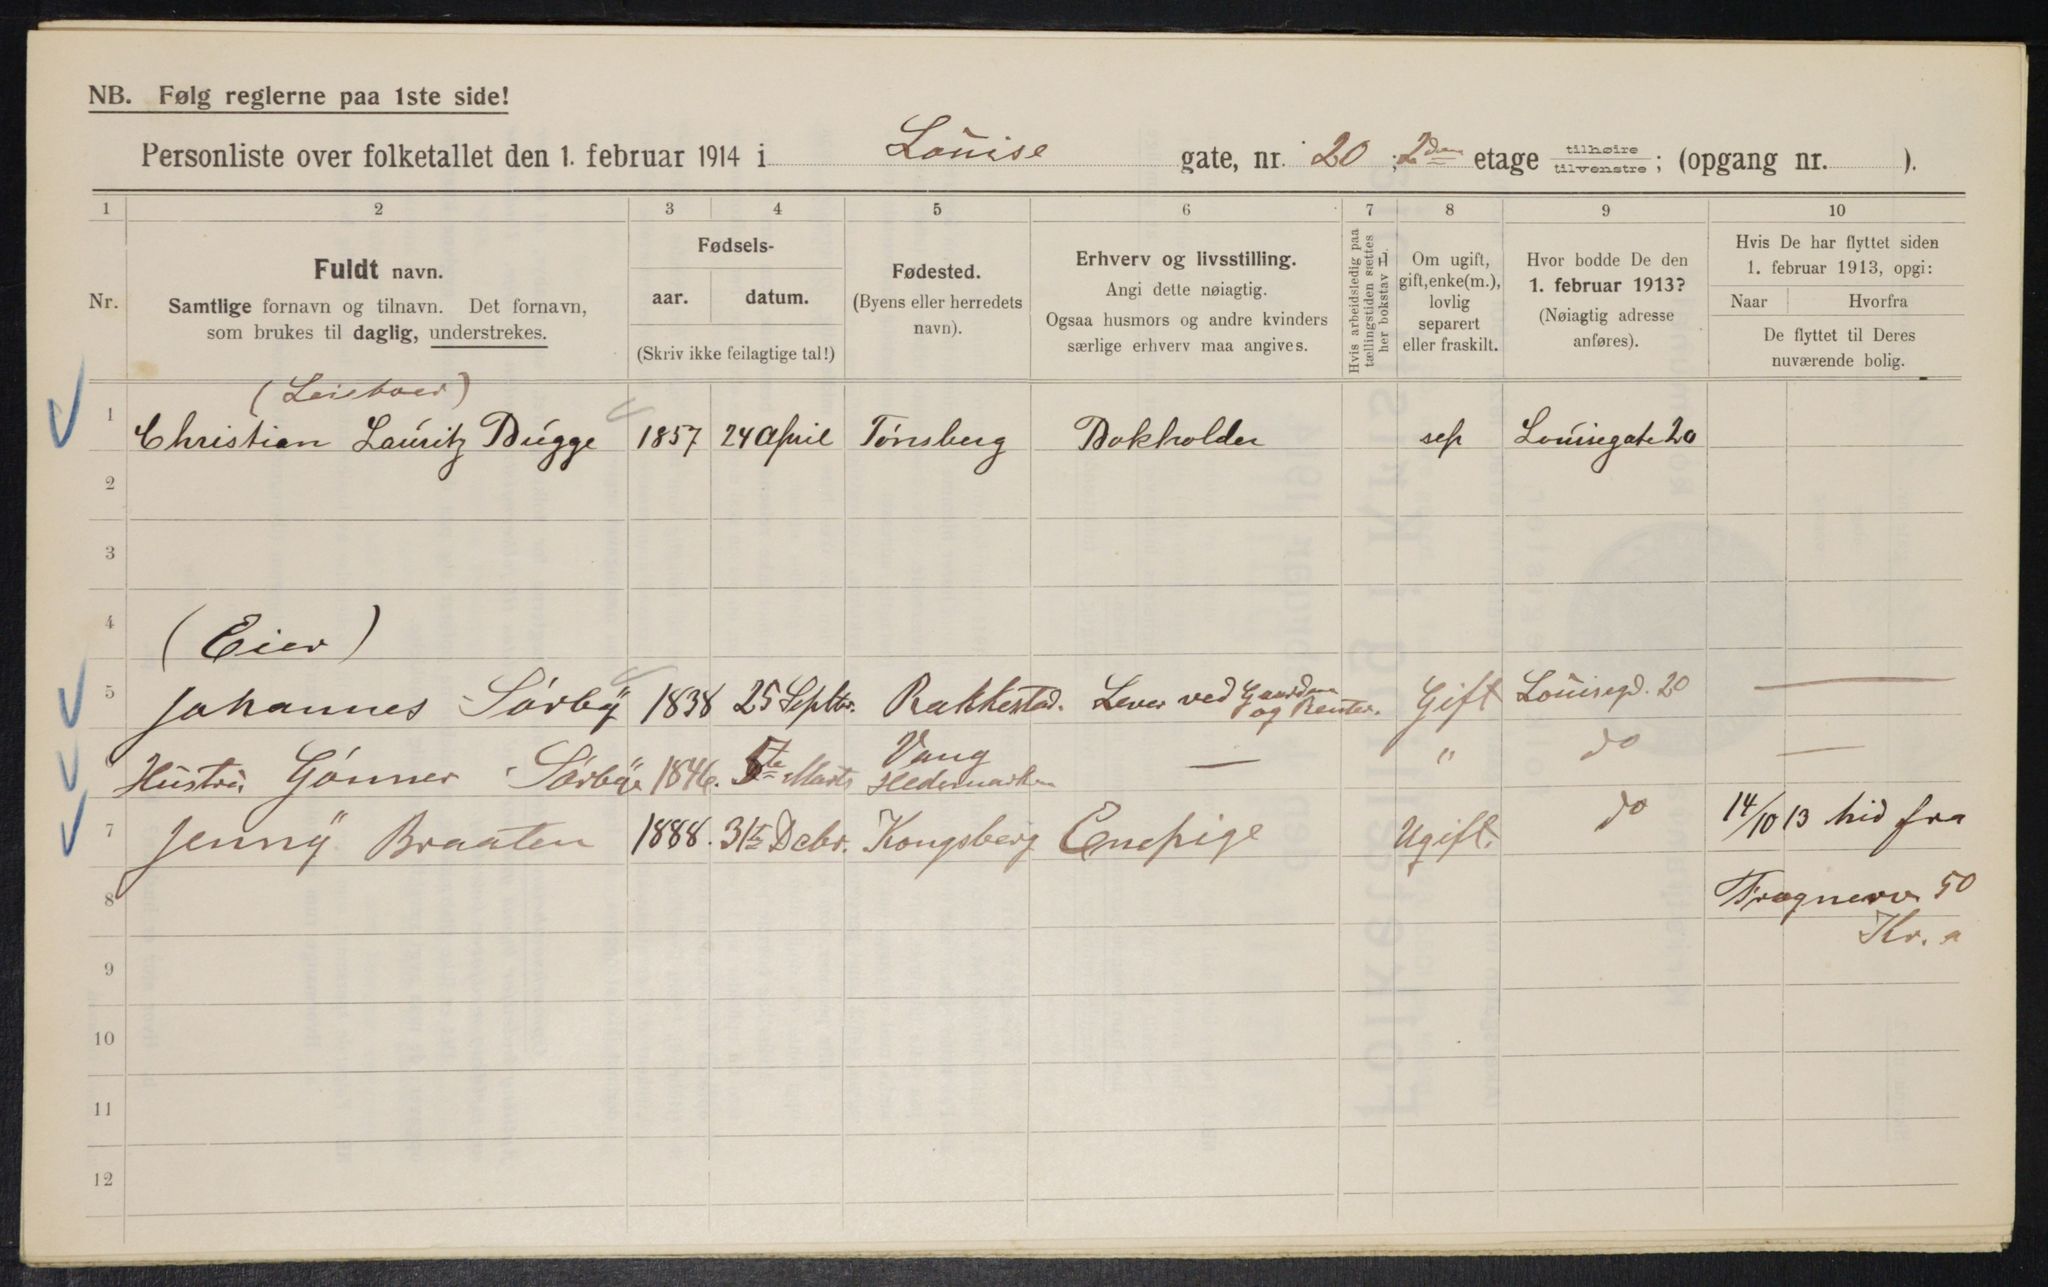 NB. Følg reglerne paa 1ste side!
Personliste over folketallet den 1. februar 1914 i Louise gate, nr. 20, 2den etage tilhøire / tilvenstre; (opgang nr. ).
1 2 3 4 5 6 7 8 9 10
Nr.
Fuldt navn.
Samtlige fornavn og tilnavn. Det fornavn,
som brukes til daglig, understrekes.
Fødsels-
aar. datum.
(Skriv ikke feilagtige tal!)
Fødested.
(Byens eller herredets
navn).
Erhverv og livsstilling.
Angi dette nøiagtig.
Ogsaa husmors og andre kvinders
særlige erhverv maa angives.
Hvis arbeidsledig paa
tællingstiden sættes
her bokstav L.
Om ugift,
gift, enke(m.),
lovlig
separert
eller fraskilt.
Hvor bodde De den
1. februar 1913?
(Nøiagtig adresse
anføres).
Hvis De har flyttet siden
1. februar 1913, opgi:
Naar Hvorfra
De flyttet til Deres
nuværende bolig.
(Leieboer)
1 Christian Lauritz Bugge 1857 24 April Tønsberg Bokholder sep Louisegate 20
2
3
4 (Eier)
5 Johannes Sörby 1838 25 Septbr. Rakkestad. Lever ved Gaarden og Renter. Gift Louisegd. 20 —
6 Hustru Gunner Sörby 1846. 5te Marts Vang Hedemarken — " do —
7 Jenny Braaten 1888. 31te Debr. Kongsberg Enepige Ugift. do 14/10 13 hid fra
8 Frognerv 50
Kr. a
9
10
11
12